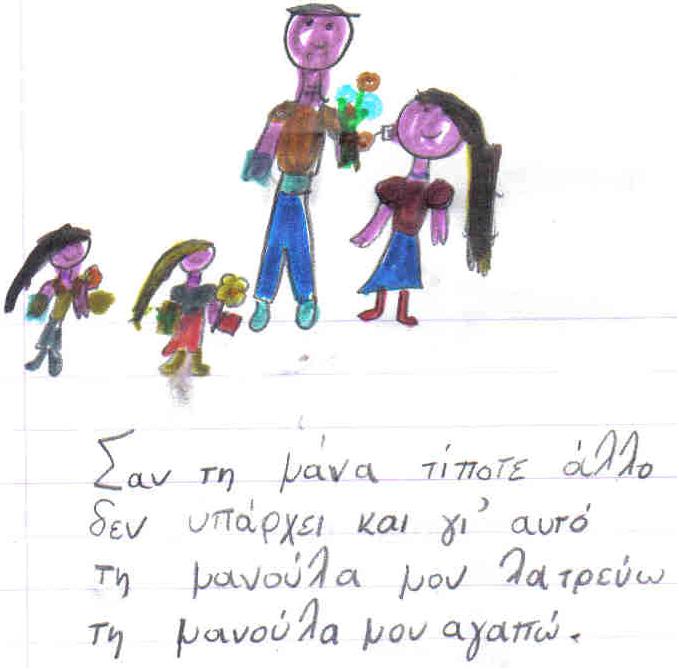 Σαν τη μάνα τίποτε άλλο
δεν υπάρχει και γι' αυτό
τη μανούλα μου λατρεύω
τη μανούλα μου αγαπώ.